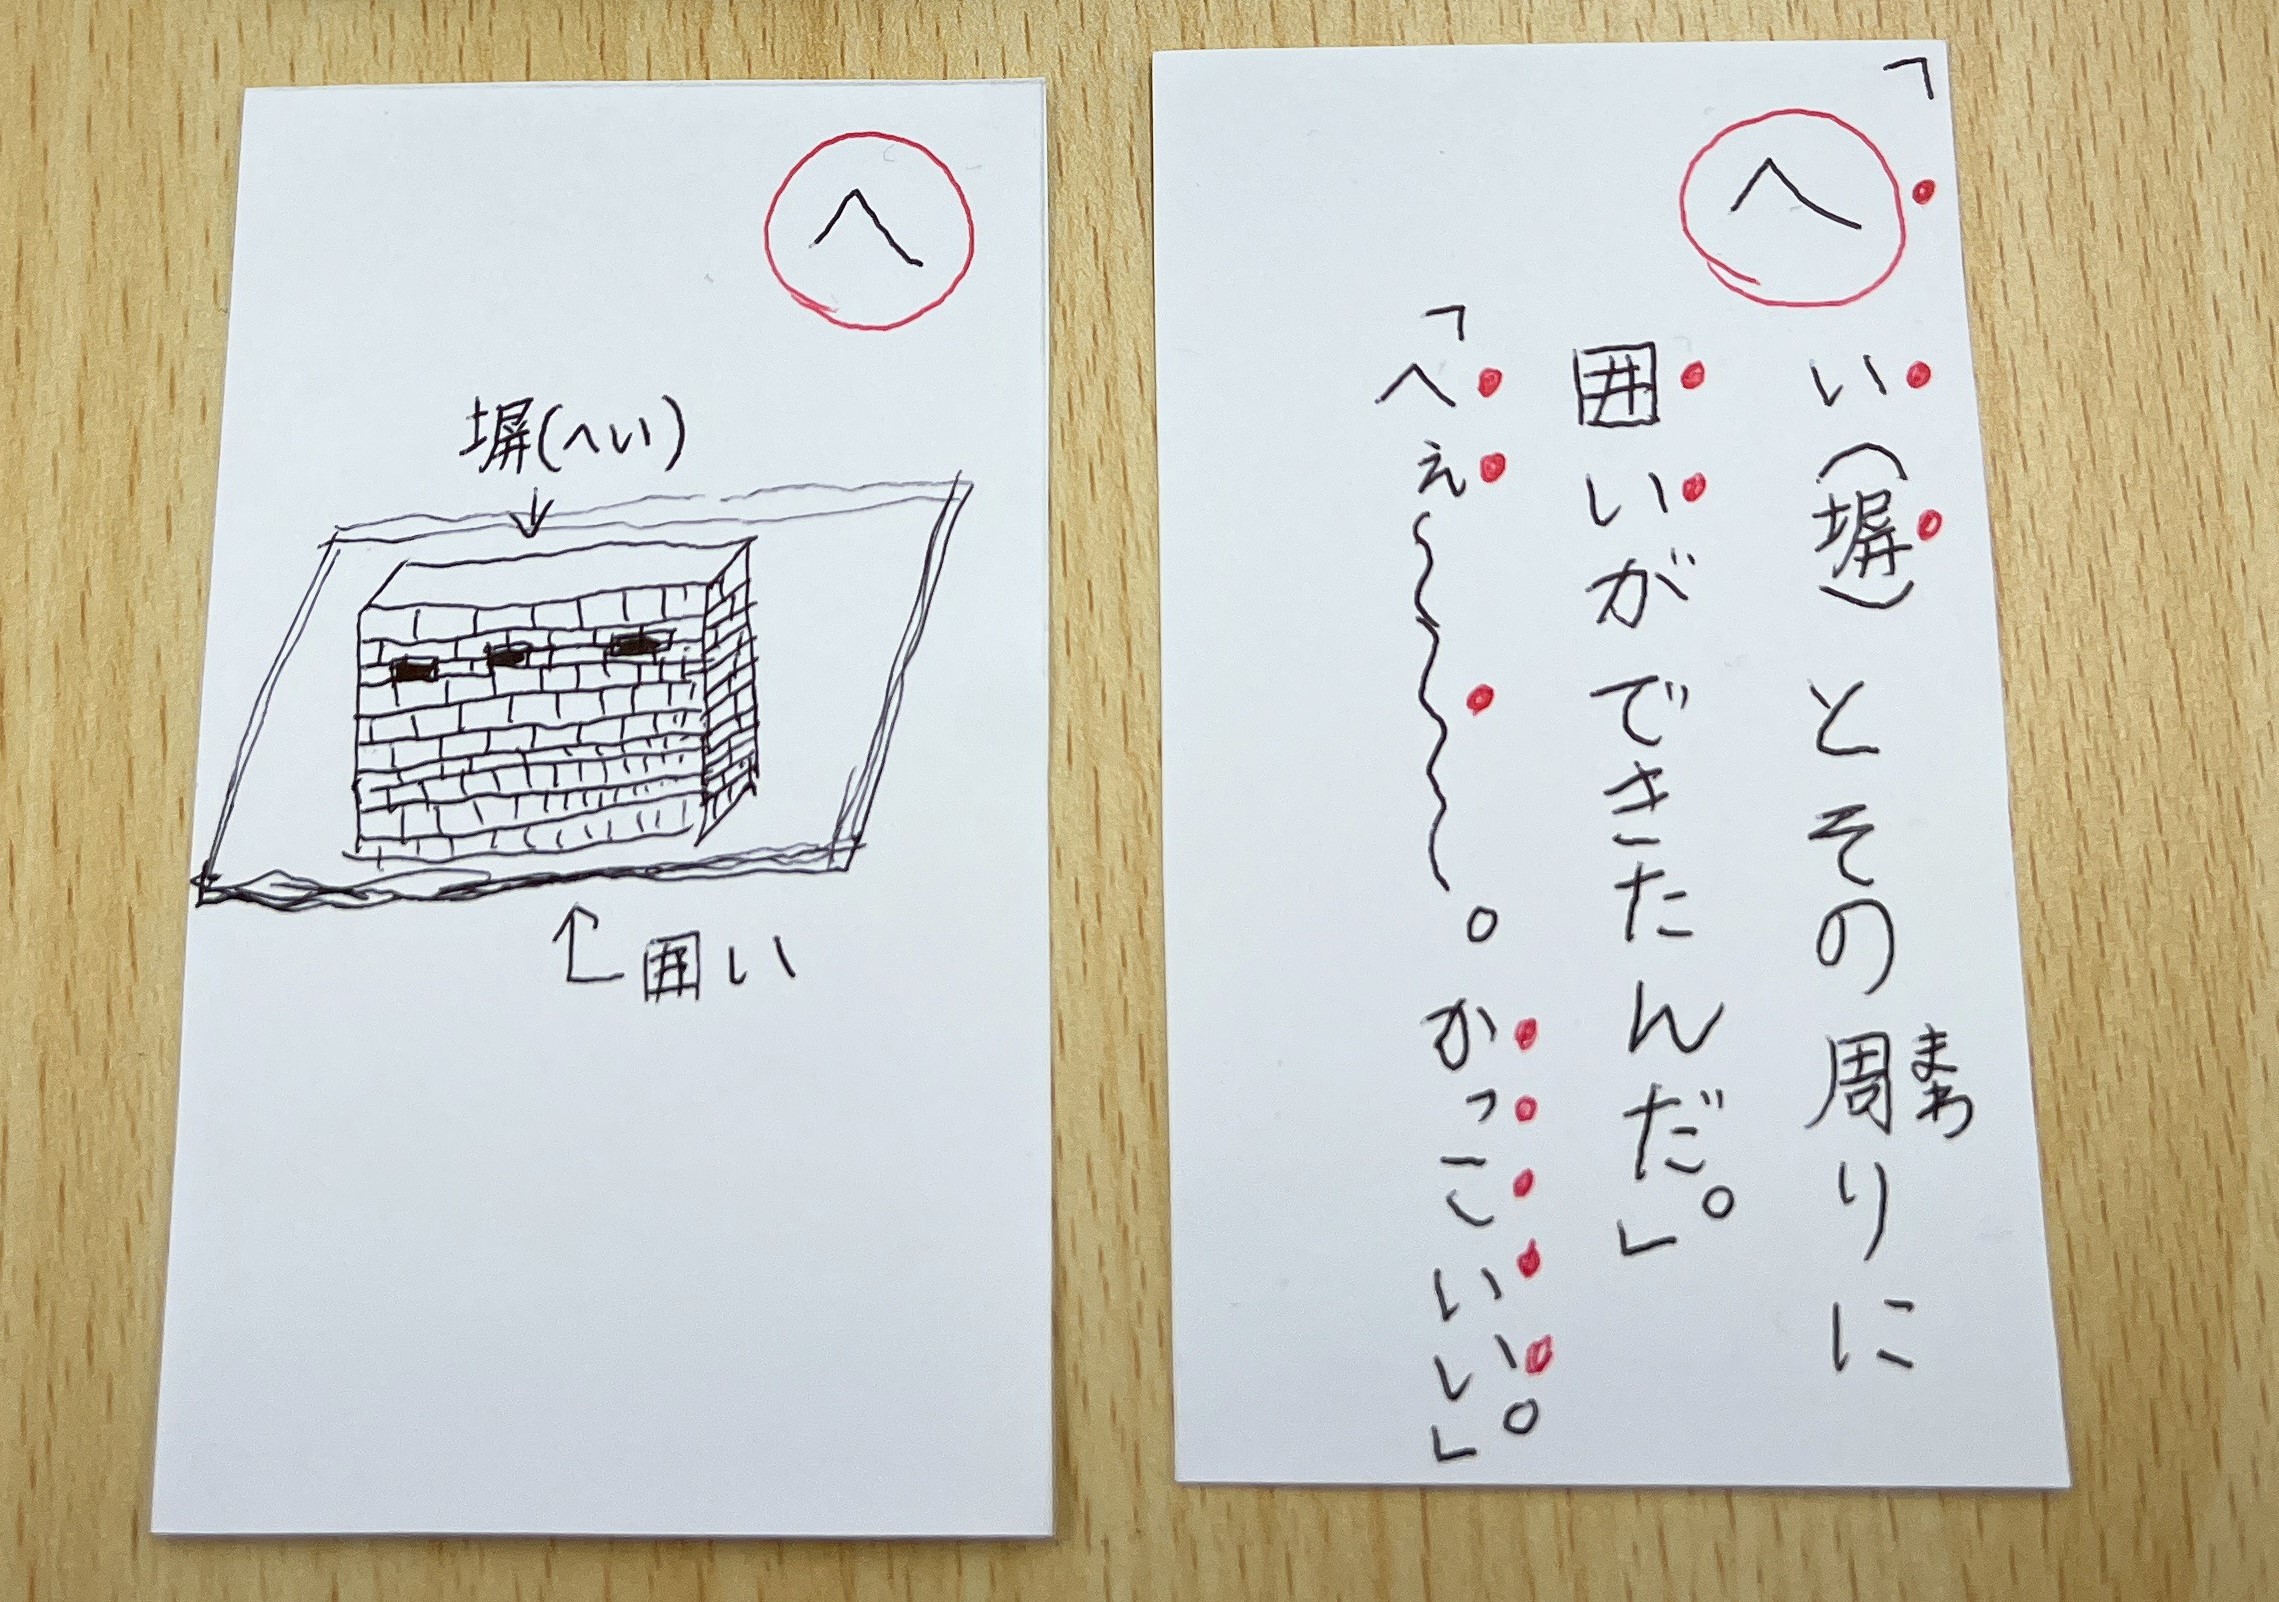 へ
塀(へい)
囲い
「へい(塀)とその周りに
まわ
囲いができたんだ。」
「へぇ〜〜〜。かっこいい。」